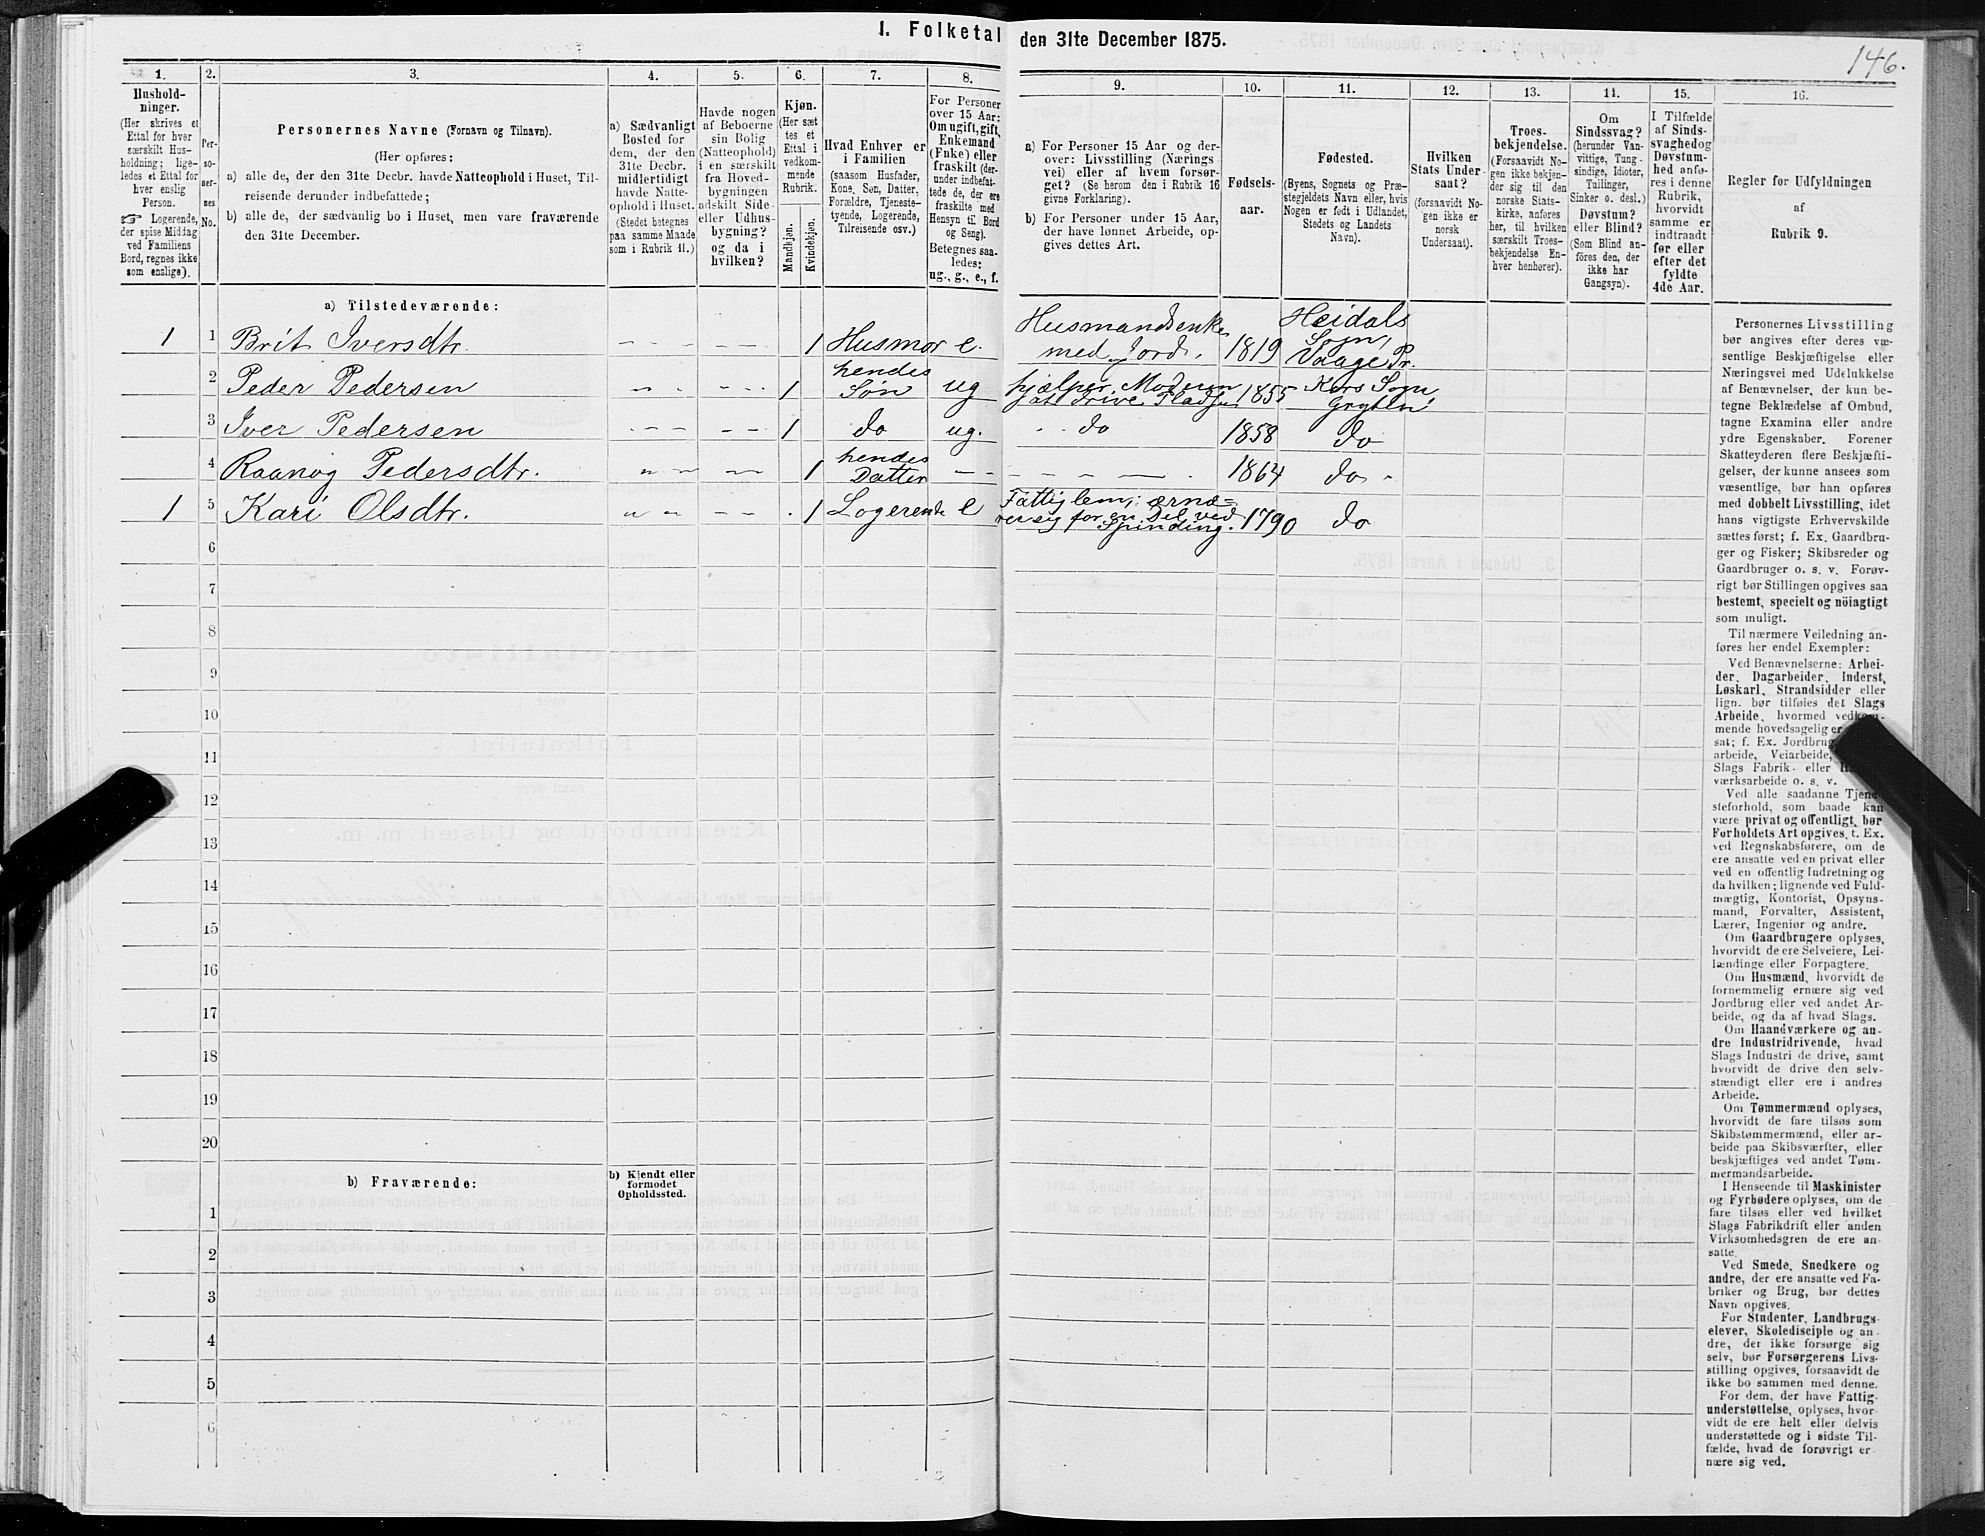 1. Folketal den 31te December 1875.
146.
1.
2.
3.
4.
5.
6.
7.
8.
9.
10.
11.
12.
13.
14.
15.
16.
Hushold-
ninger.
(Her skrives et
Ettal for hver
særskilt Hus-
holdning; lige-
ledes et Ettal for
hver enslig
Person.
☞ Logerende,
der spise Middag
ved Familiens
Bord, regnes ikke
som enslige).
Per-
so-
ner-
nes
No.
Personernes Navne (Fornavn og Tilnavn).
(Her opføres:
a) alle de, der den 31te Decbr. havde Natteophold i Huset, Til-
reisende derunder indbefattede;
b) alle de, der sædvanlig bo i Huset, men vare fraværende
den 31te December.
a) Sædvanligt
Bosted for
dem, der den
31te Decbr.
midlertidigt
havde Natte-
ophold i Huset.
(Stedet betegnes
paa samme Maade
som i Rubrik 11.)
Havde nogen
af Beboerne
sin Bolig
(Natteophold)
i en særskilt
fra Hoved-
bygningen
adskilt Side-
eller Udhus-
bygning?
og da i
hvilken?
Kjøn.
(Her sæt
tes et
Ettal i
vedkom-
mende
Rubrik.
Mandkjøn.
Kvindekjøn.
Hvad Enhver er
i Familien
(saasom Husfader,
Kone, Søn, Datter,
Forældre, Tjeneste-
tyende, Logerende,
Tilreisende osv.)
For Personer
over 15 Aar:
Om ugift, gift,
Enkemand
(Enke) eller
fraskilt (der-
under indbefat-
tede de, der ere
fraskilte med
Hensyn til Bord
og Seng).
Betegnes saa-
ledes:
ug., g., e., f.
a) For Personer 15 Aar og der-
over: Livsstilling (Nærings
vei) eller af hvem forsør-
get? (Se herom den i Rubrik 16
givne Forklaring).
b) For Personer under 15 Aar,
der have lønnet Arbeide, op-
gives dettes Art.
Fødsels-
aar.
Fødested.
(Byens, Sognets og Præ-
stegjeldets Navn eller, hvis
Nogen er født i Udlandet,
Stedets og Landets
Navn).
Hvilken
Stats Under
saat?
(forsaavidt No-
gen ikke er
norsk
Undersaat).
Troes-
bekjendelse.
(Forsaavidt No-
gen ikke bekjen-
der sig til den
norske Stats-
kirke, anføres
her, til hvilken
særskilt Troes-
bekjendelse En-
hver henhører).
Om
Sindssvag?
(herunder Van-
vittige, Tung-
sindige, Idioter,
Tullinger,
Sinker o. desl.)
Døvstum?
eller Blind?
(Som Blind an-
føres den, der
ikke har
Gangsyn).
I Tilfælde
af Sinds-
svaghed og
Døvstum-
hed anfø-
res i denne
Rubrik,
hvorvidt
samme er
indtraadt
før eller
efter det
fyldte
4de Aar.
Regler for Udfyldningen
af
Rubrik 9.
a) Tilstedeværende:
1 1 Brit Iversdtr. 1 Husmor e. Husmandsenke med Jord. 1819 Heidals Sogn, Vaage Pr.
2 Peder Pedersen 1 hendes Søn ug hjælper Moderen at drive Pladsen 1855 Kors Sogn, Gryten
3 Iver Pedersen 1 do ug. do 1858 do
4 Raanog Pedersdtr. 1 hendes Datter 1864 do
1 5 Kari Olsdtr. 1 Logerende e Fattiglem; ernæ= rer sig for en Del ved Spinding. 1790 do
6
7
8
9
10
11
12
13
14
15
16
17
18
19
20
b) Fraværende:
b) Kjendt eller
formodet
Opholdssted.
1
2
3
4
5
6
Personernes Livsstilling
bør angives efter deres væ-
sentlige Beskjæftigelse eller
Næringsvei med Udelukkelse
af Benævnelser, der kun be-
tegne Beklædelse af Ombud,
tagne Examina eller andre
ydre Egenskaber. Forener
Skatteyderen flere Beskjæfti-
gelser, der kunne ansees som
væsentlige, bør han opføres
med dobbelt Livsstilling, idet
hans vigtigste Erhvervskilde
sættes først; f. Ex. Gaardbru-
ger og Fisker; Skibsreder og
Gaardbruger o. s. v. Forøv-
rigt bør Stillingen opgives saa
bestemt, specielt og nöiagtigt
som muligt.
Til nærmere Veiledning an-
føres her endel Exempler:
Ved Benævnelserne: Arbei-
der, Dagarbeider, Inderst,
Løskarl, Strandsidder eller
lign. bør tilføies det Slags
Arbeide, hvormed vedkom-
mende hovedsagelig er
sat; f. Ex. Jordbrug
arbeide, Veiarbeide,
Slags Fabrik- eller
værksarbeide o. s. v.
Ved alle saadanne Tjene
steforhold, som baade kan
være privat og offentligt, bør
Forholdets Art opgives, t. Ex.
ved Regnskabsførere, om de
ere ansatte ved en privat eller
ved en offentlig Indretning og
da hvilken; lignende ved Fuld-
mægtig, Kontorist, Opsyns-
mand, Forvalter, Assistent,
Lærer, Ingeniør og andre.
Om Gaardbrugere oplyses,
hvorvidt de ere Selveiere, Lei-
lændinge eller Forpagtere.
Om Husmænd, hvorvidt de
fornemmelig ernære sig ved
Jordbrug eller ved andet Ar-
beide, og da af hvad Slags.
Om Haandværkere og an-
dre Industridrivende, hvad
Slags Industri de drive, samt
hvorvidt de drive den selv-
stændigt eller ere i andres
Arbeide.
Om Tømmermænd oplyses,
hvorvidt de fare tilsøs som
Skibstømmermænd, eller ar-
beide paa Skibsværfter, eller
beskjæftiges ved andet Tøm-
mermandsarbeide.
I Henseende til Maskinister
og Fyrbødere oplyses, om de
fare tilsøs eller ved hvilket
Slags Fabrikdrift eller anden
Virksomhedsgren de ere an-
satte.
Ved Smede, Snedkere og
andre, der ere ansatte ved Fa-
briker og Brug, bør dettes
Navn opgives.
For Studenter, Landbrugs-
elever, Skoledisciple og an-
dre, der ikke forsørge sig
selv, bør Forsørgerens Livs-
stilling opgives, forsaavidt de
ikke bo sammen med denne.
For dem, der have Fattig-
understøttelse, oplyses, hvor-
vidt de ere helt eller delvis
understøttede og i sidste Til-
fælde, hvad de forøvrigt er-
nære sig ved.